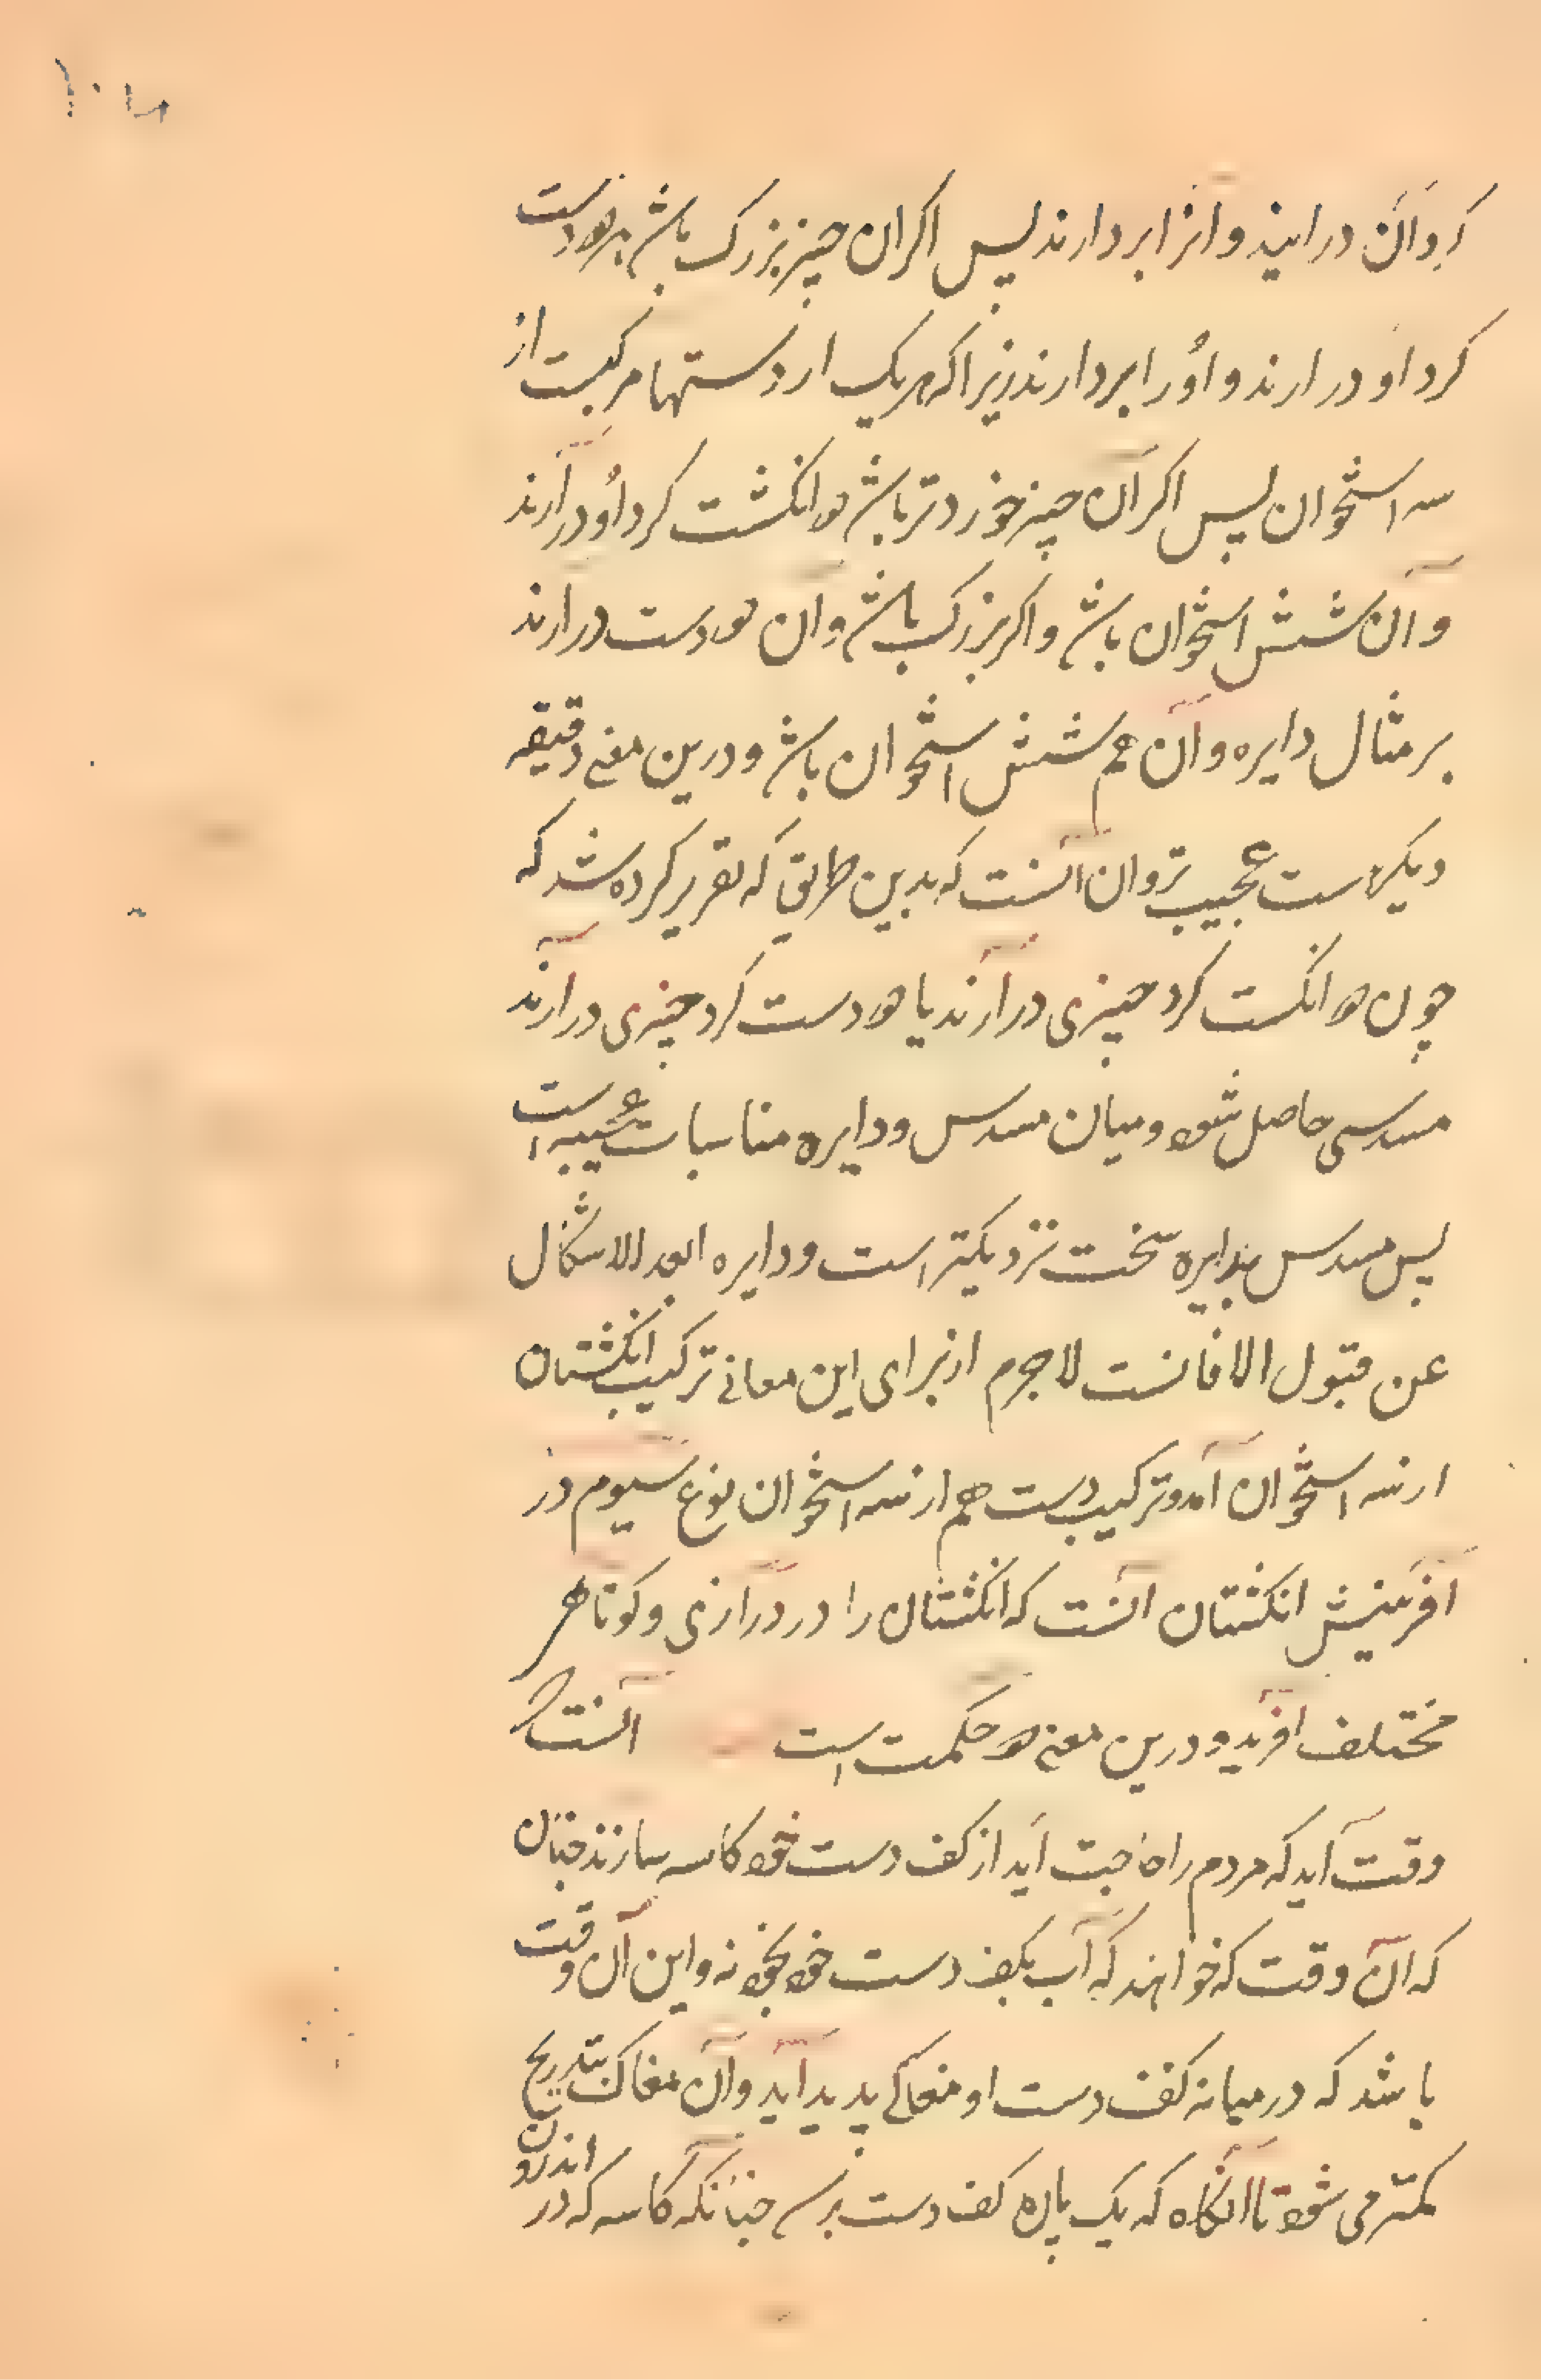 کرد آن درایند و انرا بردارند پس اکر ان چیز بزرک باشد هر دو دست
کرد او در ارند و اورا بردارند زیرا که هریک از دستها مرکبست از
سه استخوان پس اکر آن چیز خوردتر باشد دو انکشت کرد او درآرند
و آن شش استخوان باشد و اکر بزرک باشد و آن دو دست درارند
بر مثال دایره و آن هم شش استخوان باشد و درین معنی دقیقه
دیکرست عجیب تر و ان آنست که بدین طریق که تقریر کرده شد که
چون دو انکست کرد چیزی درآرند یا دو دست کرد چیزی درآرند
مسدسی حاصل شود و میان مسدس و دایره مناسبات عجیبه است
پس مسدس بدایره سخت نزدیکتر است و دایره ابعد الاشکال
عن قبول الافاتست لاجرم از برای این معانی ترکیب انکشتان
از سه استخوان آمد و ترکیب دست هم از سه استخوان نوع سیوم در
آفرینش انکشتان آنست که انکشتان را در درآزی و کوتاهی
مختلف افرید و درین معنی دو حکمت است آنست که
وقت آید که مردم را حاجت آید از کف دست خود کاسه سازند چنان
که آن وقت که خواهند که آب بکف دست خود بخورند و این آن وقت
باشد که در میانه کف دست او مغاکی پدید آید و آن مغاک بتدریج
کمتر می شود تا انکاه که یک پاره کف دست برسد چنانکه کاسه که در
اندرون